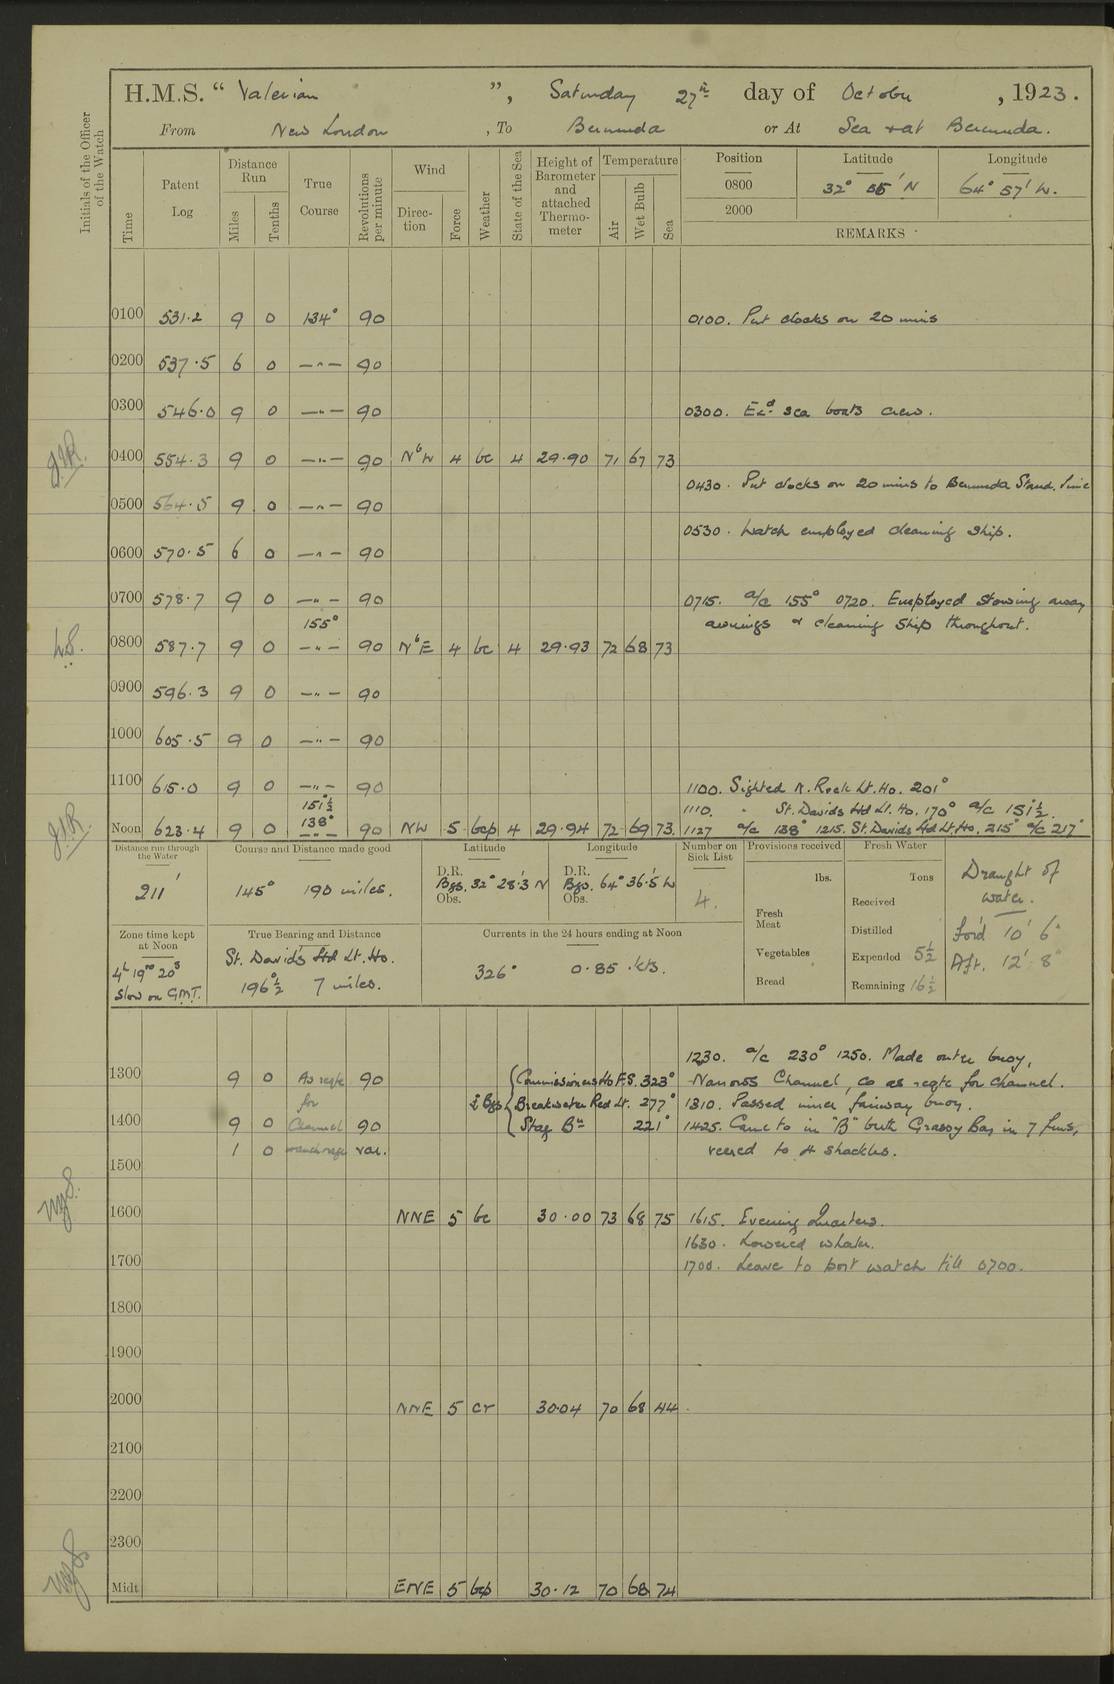 H.M.S. “ Valerian ”, Saturday 27th day of October , 1923.
From New London , To Bermuda or At Sea & at Bermuda.
Initials of the Officer of the Watch
Time
Patent Log
Distance Run
Miles
Tenths
True Course
Revolutions per minute
Wind
Direction
Force
Weather
State of the Sea
Height of Barometer and attached Thermometer
Temperature
Air
Wet Bulb
Sea
Position Latitude Longitude
0800 32° 55' N 64° 57' W.
2000
REMARKS
0100 531.2 9 0 134° 90 0100. Put clocks on 20 mins
0200 537.5 6 0 —"— 90
0300 546.0 9 0 —"— 90 0300. Exd sea boats crew.
0400 554.3 9 0 —"— 90 NbW 4 bc 4 29.90 71 67 73
0430. Put clocks on 20 mins to Bermuda Stand. Time
0500 564.5 9 0 —"— 90
0530. Watch employed cleaning ship.
0600 570.5 6 0 —"— 90
0700 578.7 9 0 —"— 90 0715. a/c 155° 0720. Employed stowing away
155° awnings & cleaning ship throughout.
0800 587.7 9 0 —"— 90 NbE 4 bc 4 29.93 72 68 73
0900 596.3 9 0 —"— 90
1000 605.5 9 0 —"— 90
1100 615.0 9 0 —"— 90 1100. Sighted N. Rock Lt. Ho. 201°
151½° 1110. " St. Davids Hd Lt. Ho. 170° a/c 151½°.
138°
Noon 623.4 9 0 —"— 90 NW 5 bcp 4 29.94 72 69 73 1127 a/c 138° 1215. St. Davids Hd Lt. Ho. 215° a/c 217°
Distance run through the Water
211'
Course and Distance made good
145° 190 miles.
Latitude
D.R.
Bgs. 32° 28.3' N
Obs.
Longitude
D.R.
Bgs. 64° 36.5' W
Obs.
Number on Sick List
4.
Provisions received
lbs.
Fresh Meat
Vegetables
Bread
Fresh Water
Tons
Received
Distilled
Expended 5½
Remaining 16½
Draught of water.
For'd 10' 6"
Aft. 12' 8"
Zone time kept at Noon
4h 19m 20s
Slow on G.M.T.
True Bearing and Distance
St. David's Hd Lt. Ho.
196½° 7 miles.
Currents in the 24 hours ending at Noon
326° 0.85 kts.
1230. a/c 230° 1250. Made outer buoy,
1300 9 0 As reqte 90 Commissioners Ho F.S. 323° Narrows Channel, Co as reqte for channel.
for Bgs Breakwater Red Lt. 277° 1310. Passed inner fairway buoy.
1400 9 0 Channel 90 Stag Bn 221° 1425. Came to in "B" berth Grassy Bay in 7 fms,
1 0 & anchorage var. veered to 4 shackles.
1500
1600 NNE 5 bc 30.00 73 68 75 1615. Evening Quarters.
1630. Lowered whaler.
1700 1700. Leave to port watch till 0700.
1800
1900
2000 NNE 5 cr 30.04 70 68 44
2100
2200
2300
Midt. ENE 5 bcp 30.12 70 68 74